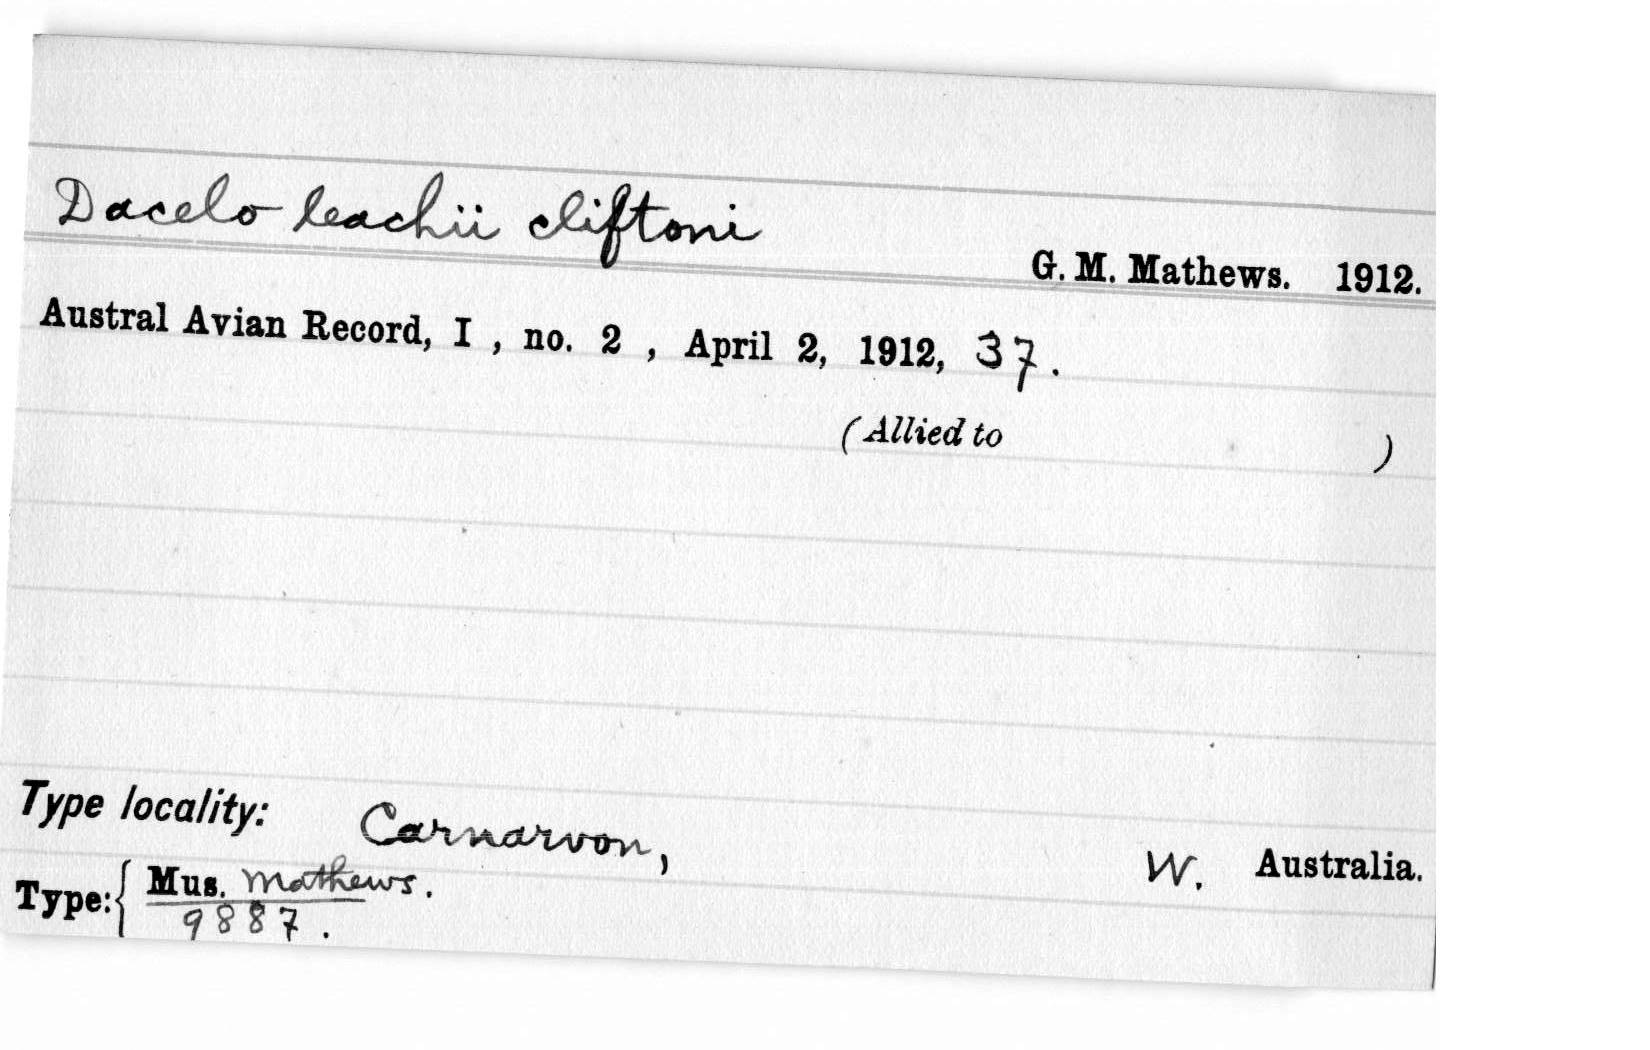 Dacelo leachii cliftoni
G. M. Mathews. 1912.
Austral Avian Record, I , no. 2 , April 2, 1912, 37.
(Allied to )
Type locality: Carnarvon, W. Australia.
Type: { Mus. Mathews.
9887.